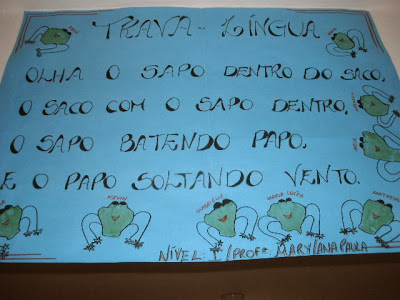 TRAVA-LÍNGUA
OLHA O SAPO DENTRO DO SACO,
O SACO COM O SAPO DENTRO,
O SAPO BATENDO PAPO,
E O PAPO SOLTANDO VENTO.
MARIA LUÍZA
NÍVEL: I / PROFª MARY/ANA PAULA